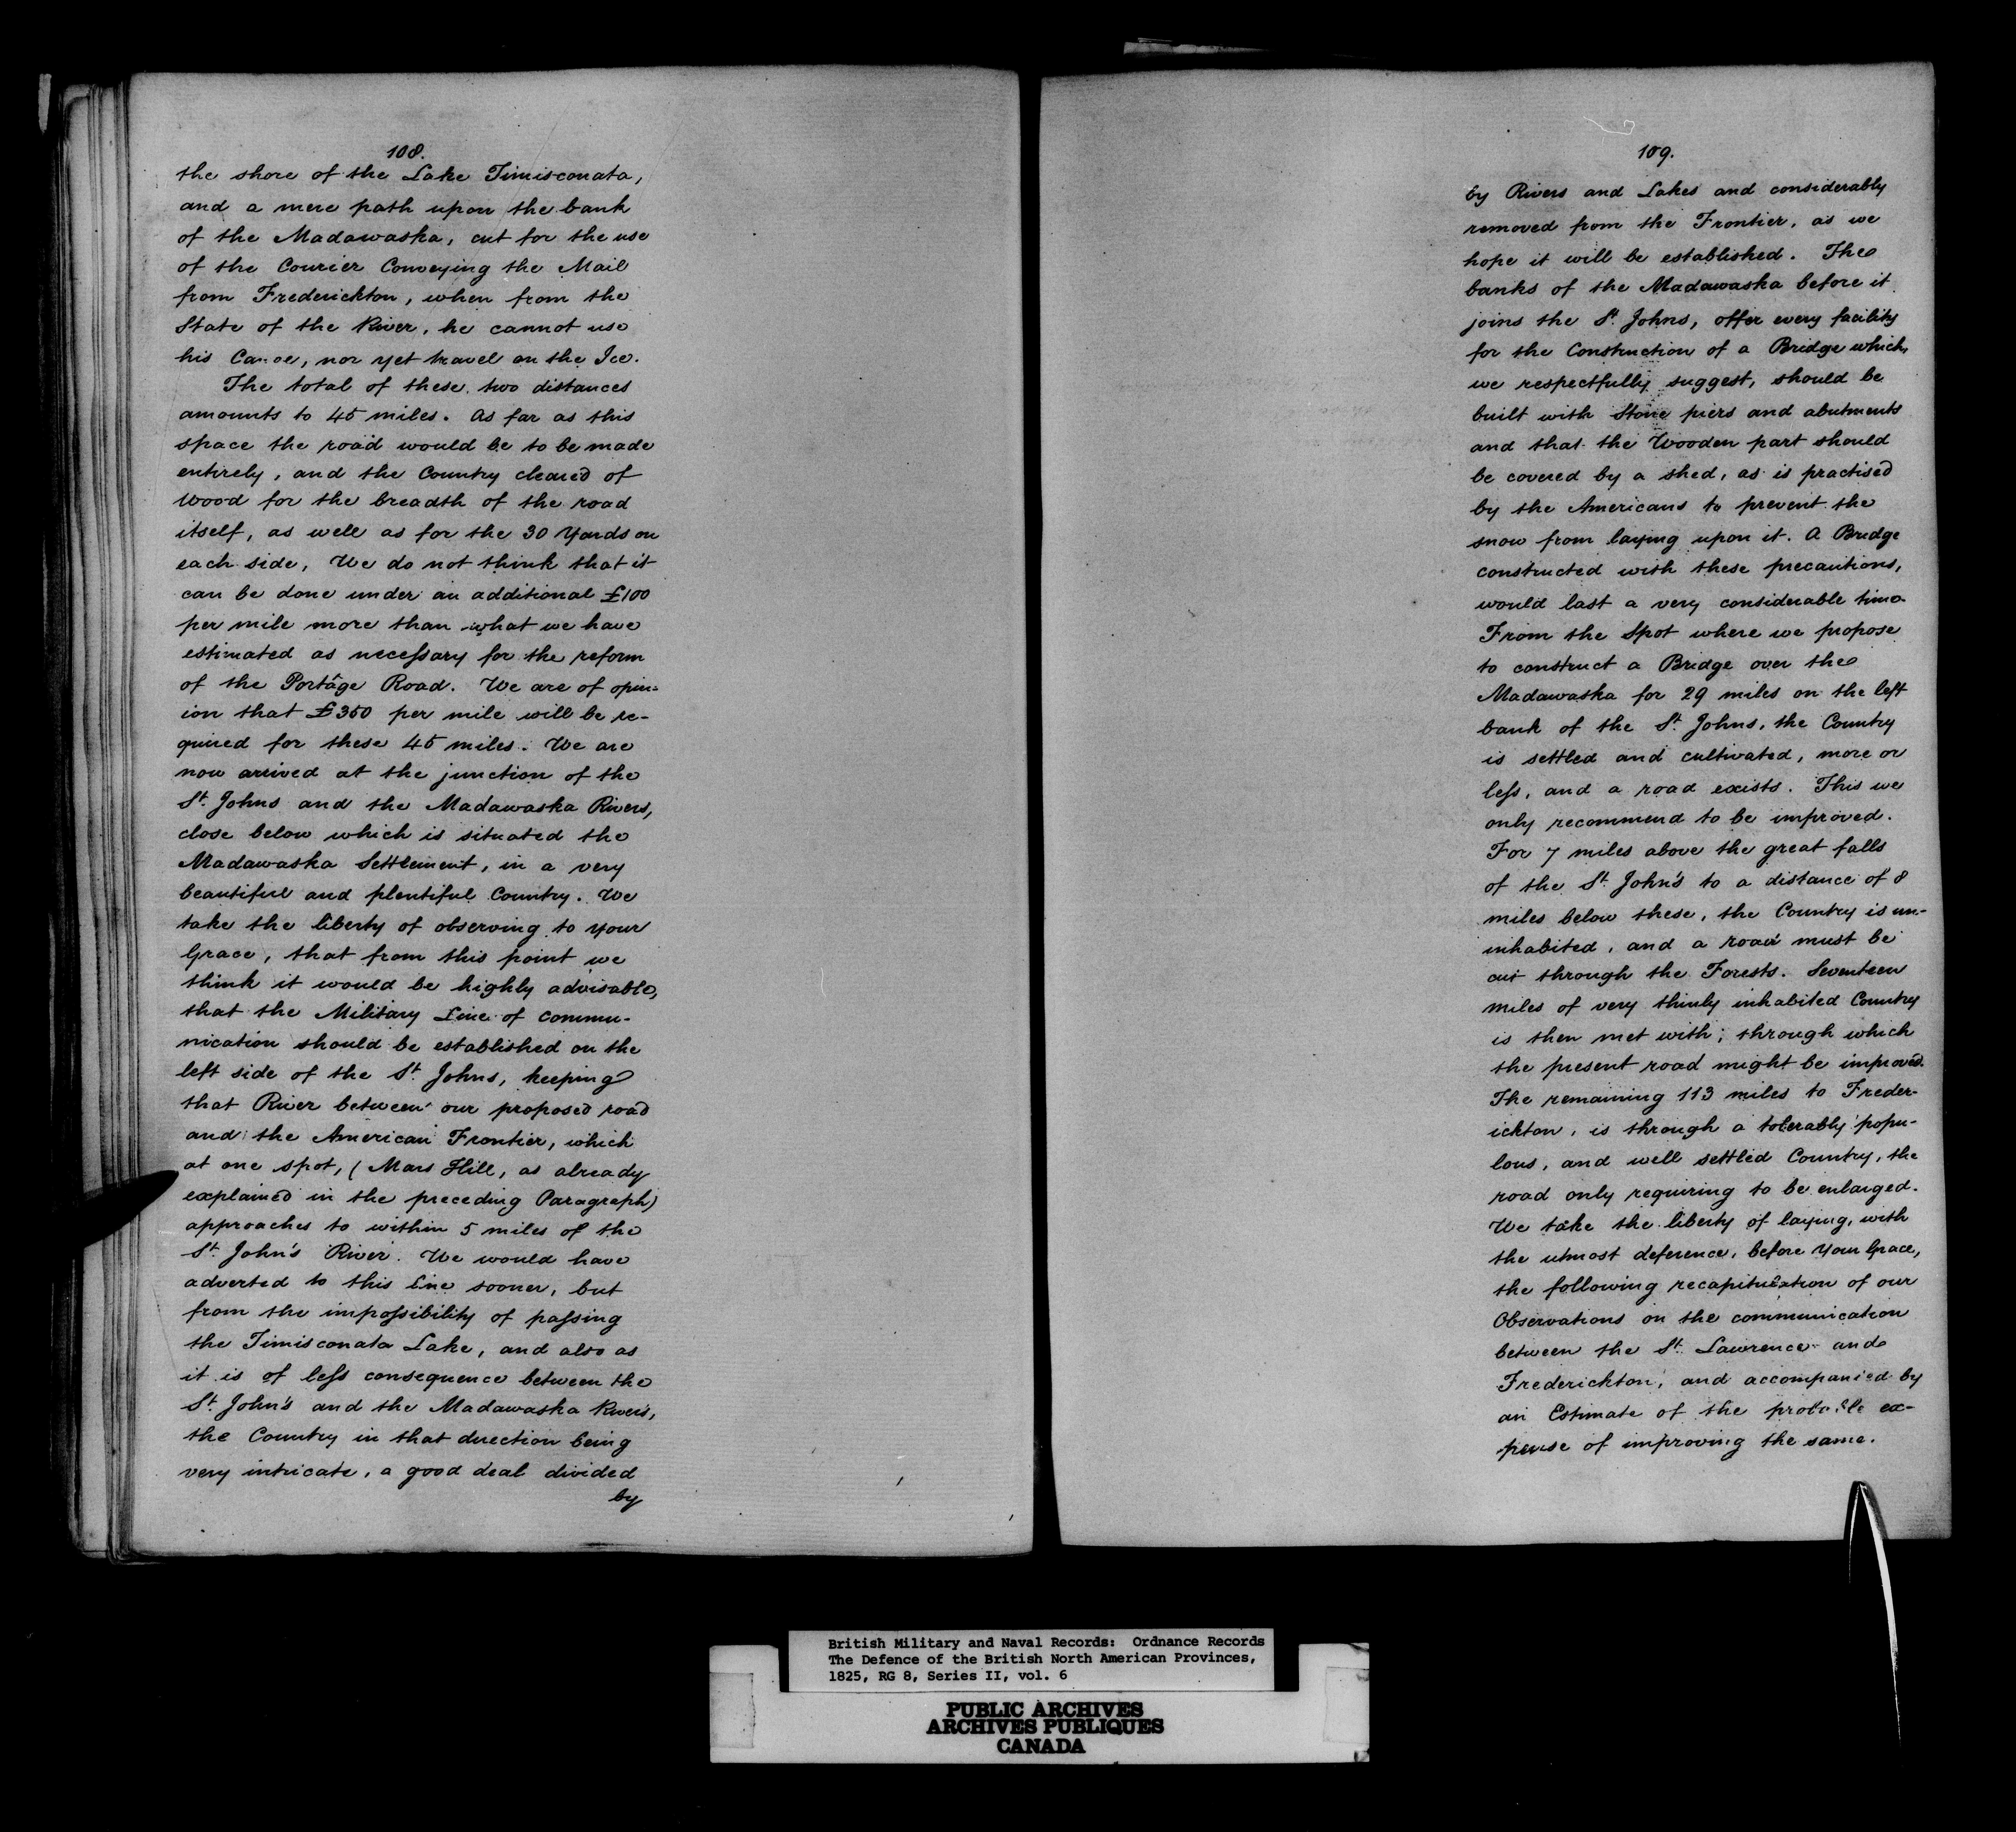 108.
the shore of the Lake Timisconata,
and a mere path upon the bank
of the Madawaska, cut for the use
of the Courier Conveying the Mail
from Frederickton, when from the
State of the River, he cannot use
his Canoe, nor yet travel on the Ice.
The total of these two distances
amounts to 45 miles. As far as this
space the road would be to be made
entirely, and the Country cleared of
Wood for the breadth of the road
itself, as well as for the 30 Yards on
each side, We do not think that it
can be done under an additional £100
per mile more than what we have
estimated as necessary for the reform
of the Portâge Road. We are of opin-
ion that £350 per mile will be re-
quired for these 45 miles. We are
now arrived at the junction of the
St. Johns and the Madawaska Rivers,
close below which is situated the
Madawaska Settlement, in a very
beautiful and plentiful Country. We
take the liberty of observing to your
Grace, that from this point we
think it would be highly advisable,
that the Military Line of commu-
nication should be established on the
left side of the St. Johns, keeping
that River between our proposed road
and the American Frontier, which
at one spot, (Mars Hill, as already
explained in the preceding Paragraph)
approaches to within 5 miles of the
St. John's River. We would have
adverted to this line sooner, but
from the impossibility of passing
the Timisconata Lake, and also as
it is of less consequence between the
St. John's and the Madawaska Rivers,
the Country in that direction being
very intricate, a good deal divided
by
109.
by Rivers and Lakes and considerably
removed from the Frontier, as we
hope it will be established. The
banks of the Madawaska before it
joins the St. Johns, offer every facility
for the Construction of a Bridge which,
we respectfully suggest, should be
built with Stone piers and abutments
and that the Wooden part should
be covered by a shed, as is practised
by the Americans to prevent the
snow from laying upon it. A Bridge
constructed with these precautions,
would last a very considerable time.
From the Spot where we propose
to construct a Bridge over the
Madawaska for 29 miles on the left
bank of the St. Johns, the Country
is settled and cultivated, more or
less, and a road exists. This we
only recommend to be improved.
For 7 miles above the great falls
of the St. John's to a distance of 8
miles below these, the Country is un-
inhabited, and a road must be
cut through the Forests. Seventeen
miles of very thinly inhabited Country
is then met with; through which
the present road might be improved.
The remaining 113 miles to Freder-
ickton, is through a tolerably popu-
lous, and well settled Country, the
road only requiring to be enlarged.
We take the liberty of laying, with
the utmost deference, before Your Grace,
the following recapitulation of our
Observations on the communication
between the St. Lawrence and
Frederickton, and accompanied by
an Estimate of the probable ex-
pense of improving the same.
British Military and Naval Records: Ordnance Records
The Defence of the British North American Provinces,
1825, RG 8, Series II, vol. 6
PUBLIC ARCHIVES
ARCHIVES PUBLIQUES
CANADA